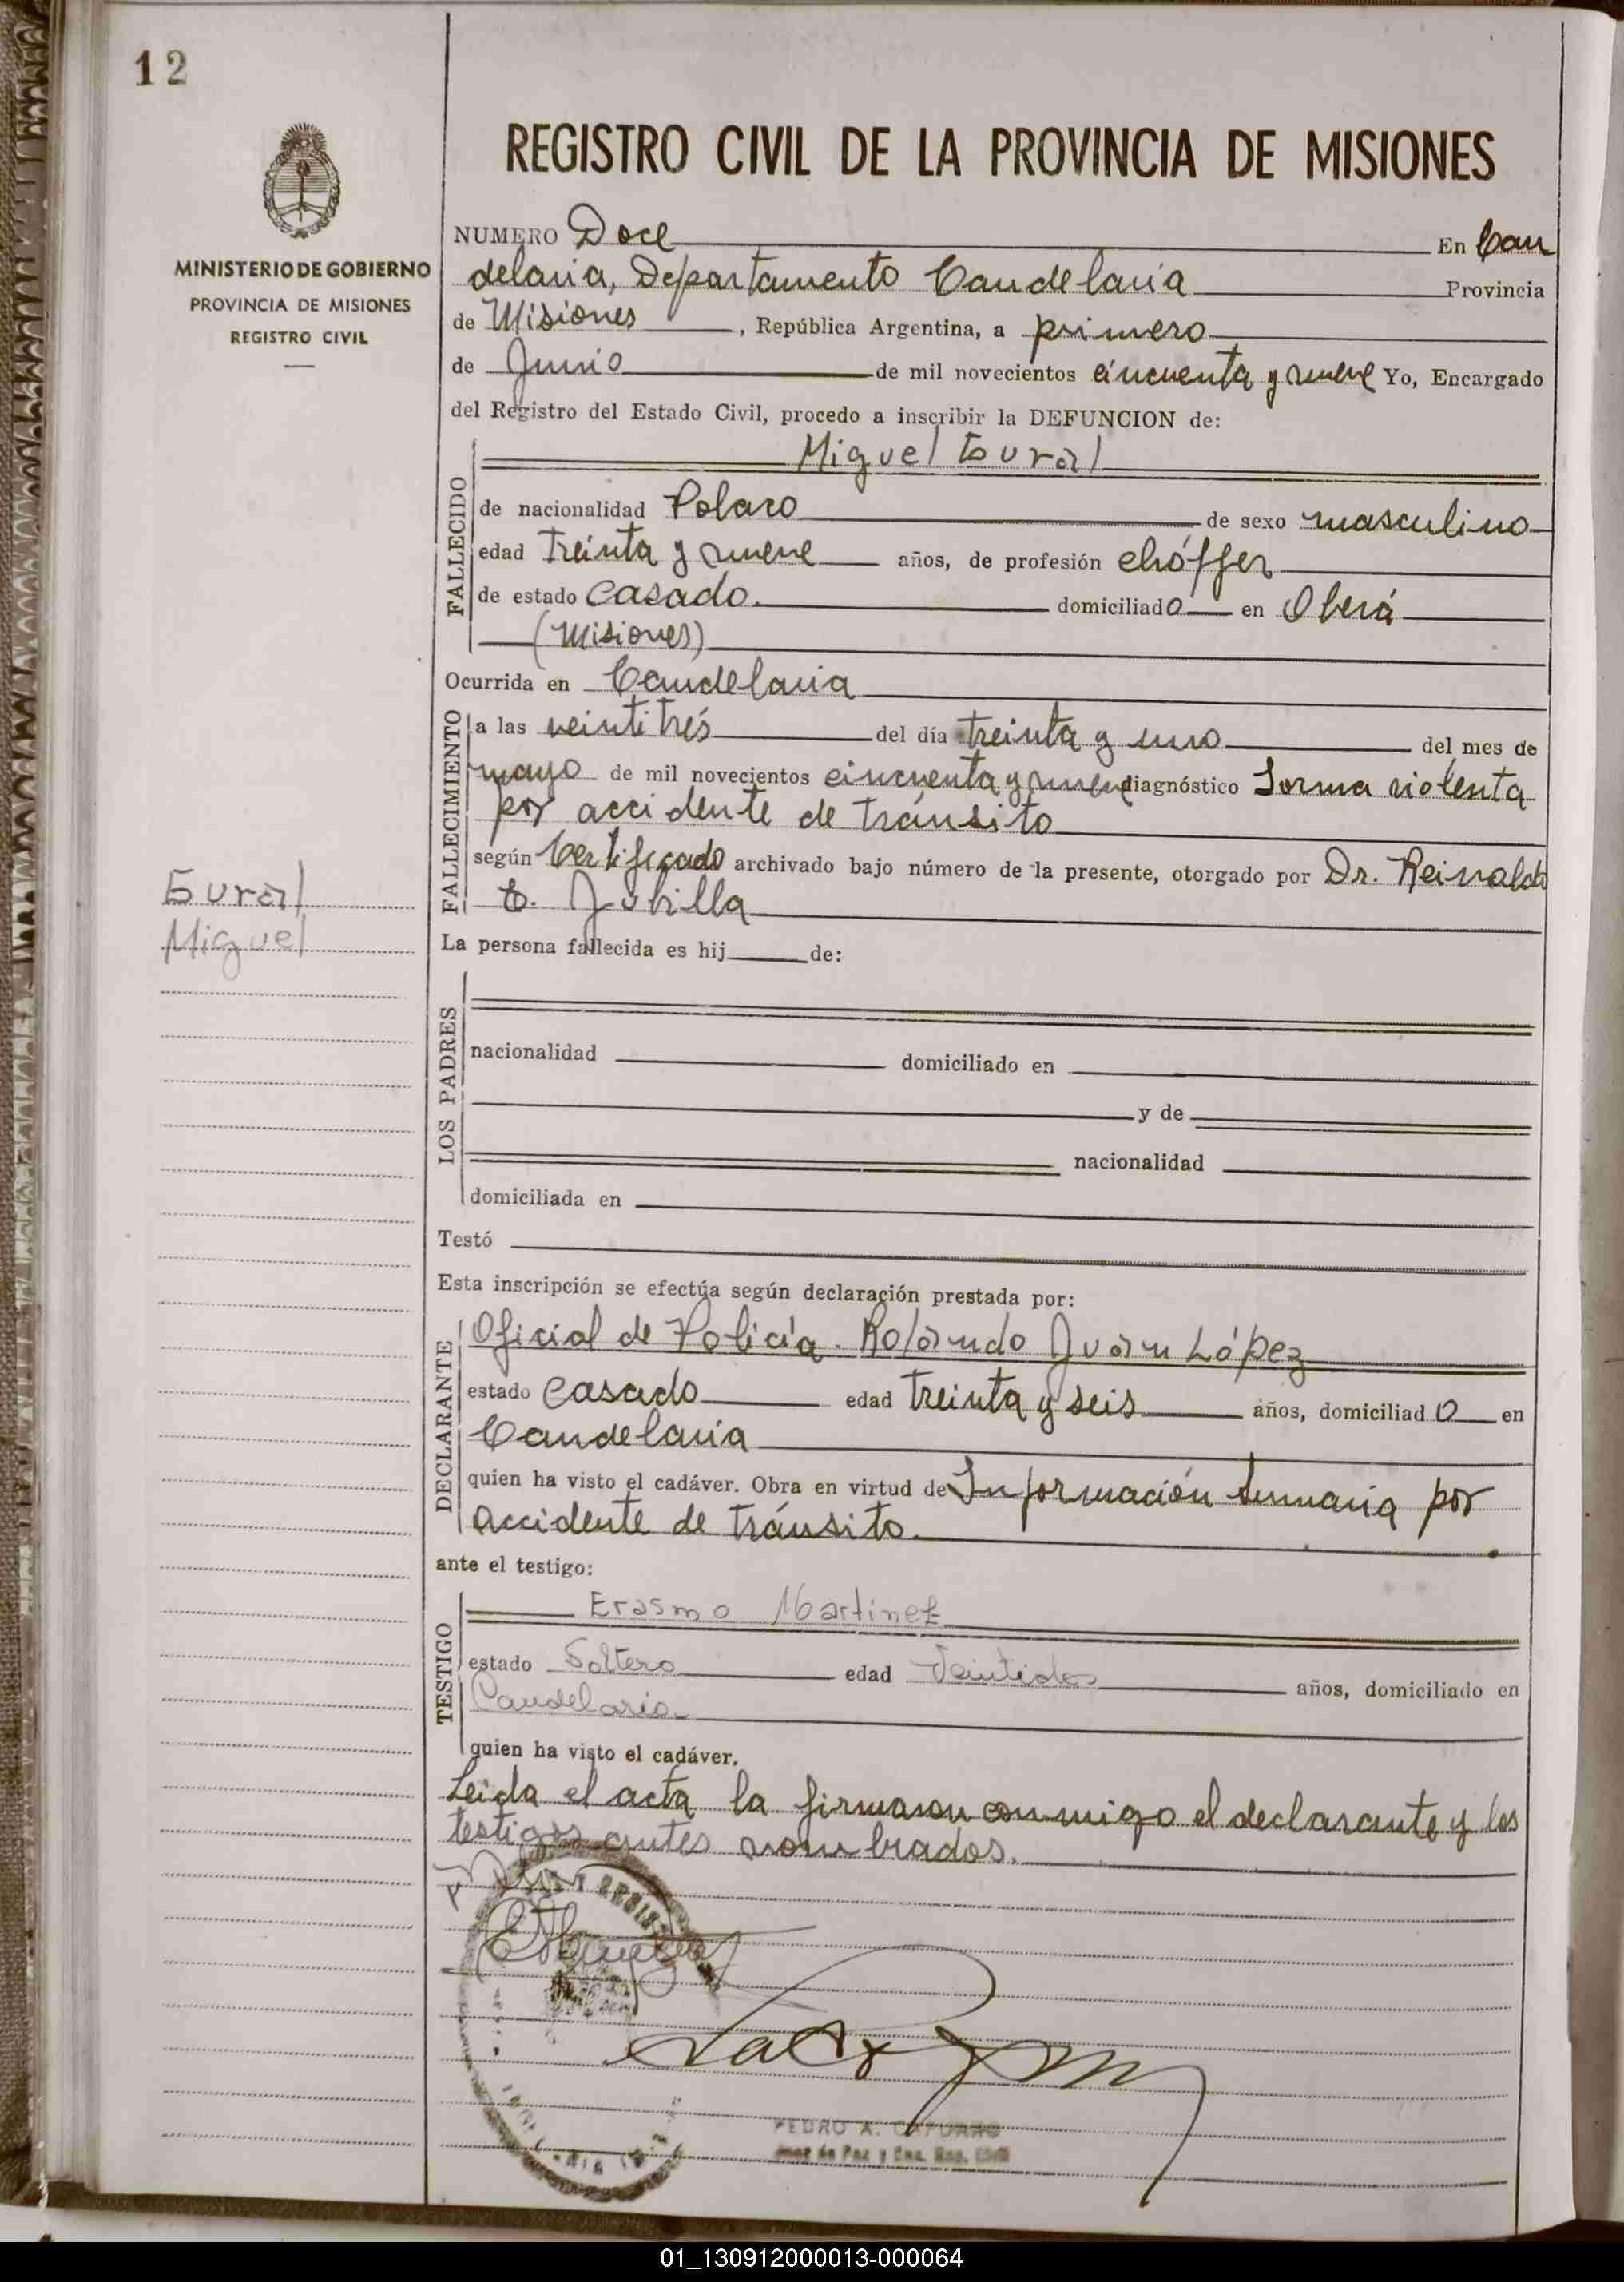 12
REGISTRO CIVIL DE LA PROVINCIA DE MISIONES
MINISTERIO DE GOBIERNO
PROVINCIA DE MISIONES
REGISTRO CIVIL
NUMERO Doce En Can
delaria, Departamento Candelaria Provincia
de Misiones, República Argentina, a primero
de Junio de mil novecientos cincuenta y nueve Yo, Encargado
del Registro del Estado Civil, procedo a inscribir la DEFUNCION de:
FALLECIDO
Miguel
de nacionalidad Polaco de sexo masculino
edad treinta y nueve años, de profesión chóffer
de estado Casado. domiciliado en Oberá
(Misiones)
Ocurrida en Candelaria
FALLECIMIENTO
a las veintitrés del día treinta y uno del mes de
mayo de mil novecientos cincuenta y nueve diagnóstico Forma violenta
por accidente de tránsito
según Certificado archivado bajo número de la presente, otorgado por Dr. Reinaldo
Miguel
La persona fallecida es hij de:
LOS PADRES
nacionalidad domiciliado en
y de
nacionalidad
domiciliada en
Testó
Esta inscripción se efectúa según declaración prestada por:
DECLARANTE
Oficial de Policía. Rolando Juan López
estado Casado edad treinta y seis años, domiciliado en
Candelaria
quien ha visto el cadáver. Obra en virtud de Información Sumaria por
accidente de tránsito.
ante el testigo:
TESTIGO
Erasmo Martinez
estado Soltero edad Veintidos años, domiciliado en
Candelaria
quien ha visto el cadáver.
Leida el acta la firmaron conmigo el declarante y los
testigos antes nombrados.
PEDRO A.
Juez de Paz y Enc. Reg. Civil
01_130912000013-000064